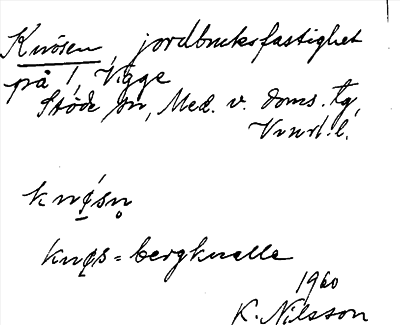 Knösen, jordbruksfastighet
på 1, Vigge
Stöde sn, Med. v. doms. tg,
Vnrl. l.
knǿ̱sn̥
knø̱s = bergknalle
1960
K. Nilsson